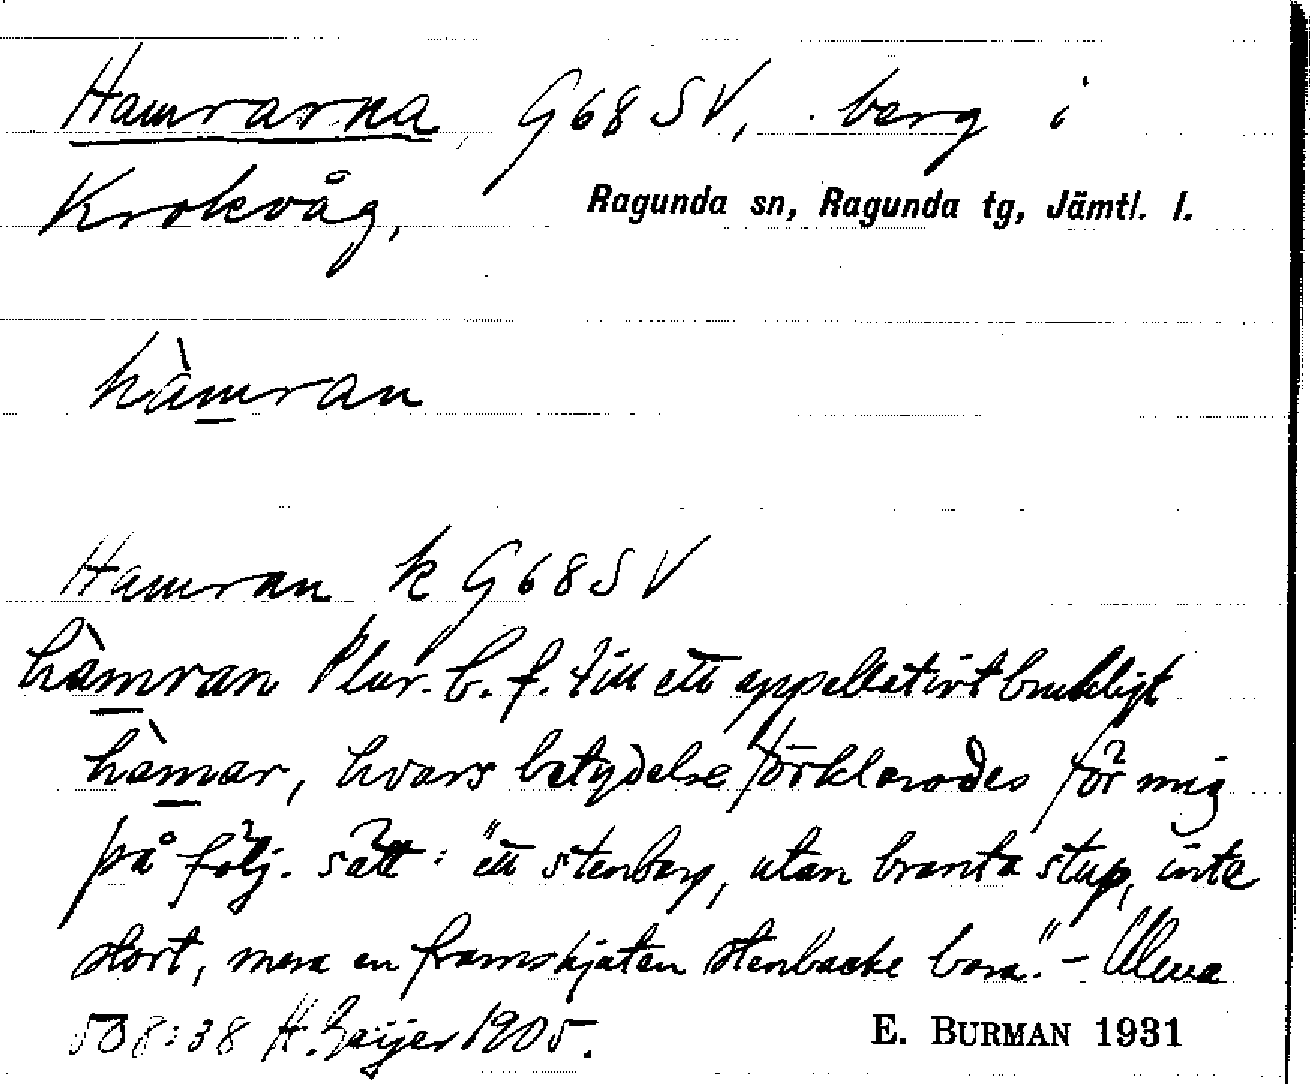 Hamrarna, G68SV, berg i
Krokvåg, Ragunda sn, Ragunda tg, Jämtl. l.
hàmran
Hamran k G68SV
hàmran Plur. b. f. till ett appellativt brukligt
hàmar, hvars betydelse förklarades för mig
på följ. sätt: "ett stenberg, utan branta stup, inte
stort, mera en framskjuten stenbacke bara." -
508:38 H. Geijer 1905. E. BURMAN 1931